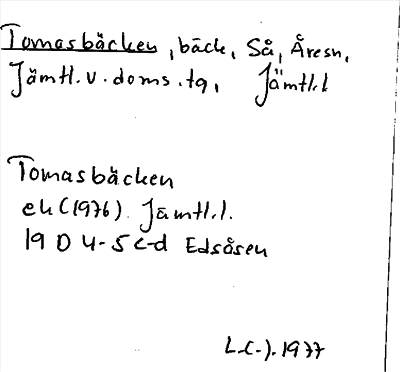 Tomasbäcken, bäck, Så, Åresn,
Jämtl.v.doms.tg, Jämtl.l
Tomasbäcken
ek (1976) Jämtl.l.
19 D 4-5 c-d Edsåsen
L-C-J. 1977